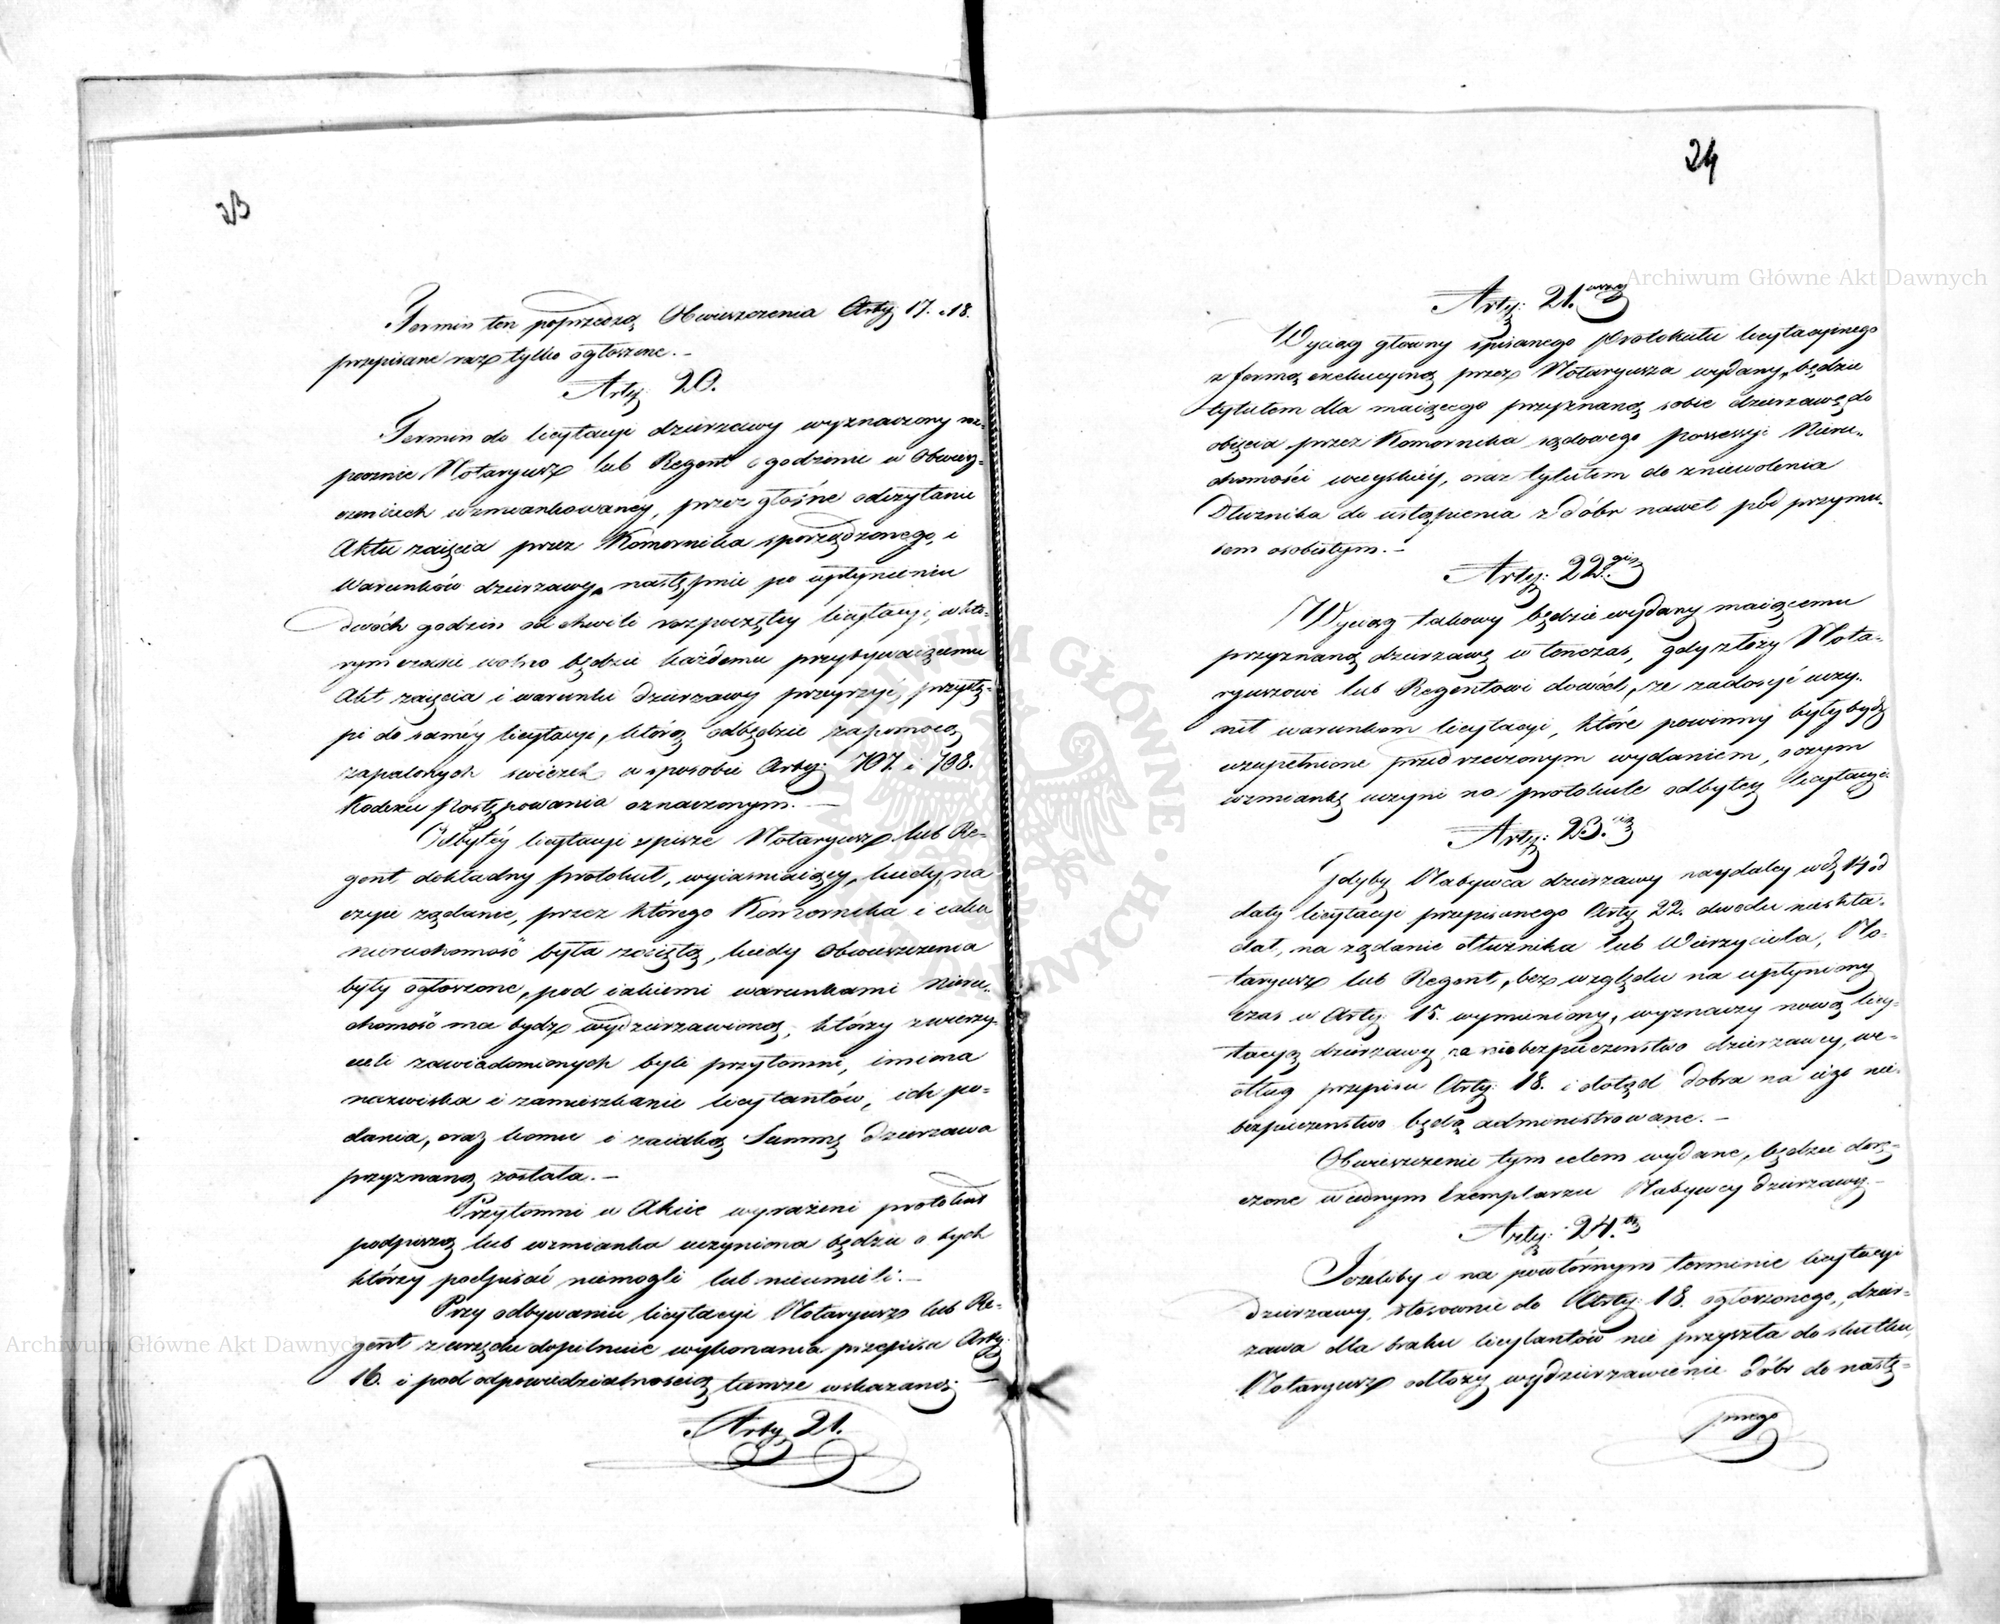 23
Termin ten poprzedzą Obwieszczenia Arty 17. i 18.
przepisane raz tylko ogłoszone. –
Arty: 20.
Termin do licytacyi dzierzawy wyznaczony roz-
pocznie Notaryusz lub Regent o godzinie w Obwiesz-
czeniach wzmiankowanéy, przez głośne odczytanie
Aktu zaięcia przez Komornika sporządzonego, i
Warunków dzierzawy, następnie po upłynieniu
dwóch godzin od chwili rozpoczętey licytacyi, w któ-
rym czasie wolno będzie każdemu przybywaiącemu
Akt zaięcia i warunki dzierzawy przeyrzyć, przystą-
pi do saméy licytacyi, którą odbędzie zapomocą
zapalonych świeczek w sposobie Arty: 707. i 708.
Kodexu Postępowania oznaczonym. –
Odbytéy licytacyi spisze Notaryusz lub Re-
gent dokładny protokuł, wyiaśniaiący, kiedy, na
czyie ządanie, przez którego Komornika i iaka
nieruchomość była zaiętą, kiedy obwieszczenia
były ogłoszone, pod iakiemi warunkami Nieru-
chomość ma bydź wydzierzawioną, którzy z wierzy-
cieli zawiadomionych byli przytomni, imiona
nazwiska i zamieszkanie licytantów, ich po-
dania, oraz komu i zaiaką Summę dzierzawa
przyznaną została. –
Przytomni w Akcie wyrażeni protokuł
podpiszą lub wzmianka uczyniona będzie o tych
którzy podpisać niemogli lub nieumieli. –
Przy odbywaniu licytacyi Notaryusz lub Re-
gent z urzędu dopilnuie wykonania przepisu Arty:
16. i pod odpowiedzialnością tamże wskazaną –
Arty 21.
24
Arty: 21.wszy
Wyciąg główny spisanego Protokułu licytacyinego
z formą exekucyiną przez Notaryusza wydany, będzie
tytułem dla maiącego przyznaną sobie dzierzawę do
obięcia przez Komornika sądowego possessyi Nieru-
chomości wieyskiéy, oraz tytułem do zniewolenia
Dłuznika do ustąpienia z dóbr nawet pod przymu-
sem osobistym. –
Arty: 22.gi
Wyciąg takowy będzie wydany maiącemu
przyznaną dzierzawę w tenczas, gdy złoży Nota-
ryuszowi lub Regentowi dowód, ze zadosyć uczy-
nił warunkom licytacyi, które powinny były bydź
uzupełnione przed rzeczonym wydaniem, o czym
wzmiankę uczyni na protokule odbytey licytacyi
Arty: 23.ci
Gdyby Nabywca dzierzawy naydaley w dni 14 od
daty licytacyi przepisanego Arty 22. dowodu niezło-
żył, na ządanie dłuznika lub Wierzyciela, No-
taryusz lub Regent, bez względu na upłyniony
czas w Arty: 15. wymieniony, wyznaczy nową licy-
tacyą dzierzawy na niebezpieczeństwo dzierzawcy, we-
dług przepisu Arty: 18. i dotąd dobra na iégo nie-
bezpieczeństwo będą administrowane. –
Obwieszczenie tym celem wydane, będzie dorę-
czone w iednym Exemplarzu Nabywcy dzierzawy. –
Arty: 24.ty
Iezeliby i na powtórnym terminie licytacyi
dzierzawy, stosownie do Arty: 18. ogłoszonego, dzier-
zawa dla braku licytantów nie przyszła do skutku,
Notaryusz odłoży wydzierzawienie dóbr do nastę-
pnego
Archiwum Główne Akt Dawnych
Archiwum Główne Akt Dawnych
ARCHIWUM GŁÓWNE AKT DAWNYCH